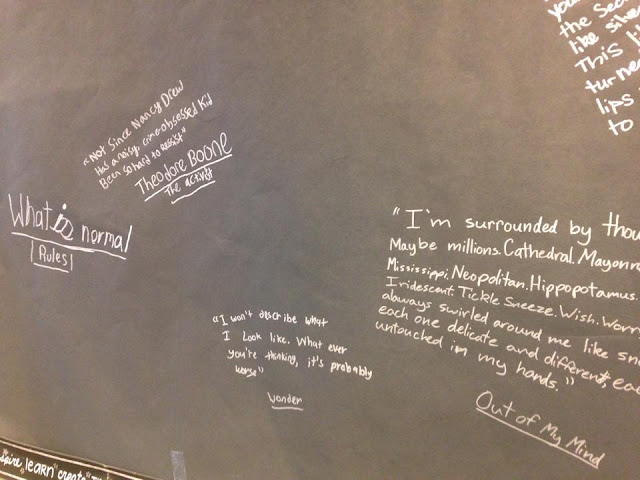 "Not Since Nancy Drew
Has a nosy, crime-obsessed Kid
Been so hard to resist"
Theodore BOONE
The activist
What is normal
Rules
"I won't describe what
I Look like. What ever
you're thinking, it's probably
worse"
Wonder
"I'm surrounded by thou
Maybe millions. Cathedral. Mayonna
Mississippi. Neopolitan. Hippopotamus
Iridescent. Tickle. Sneeze. Wish. Worr
always swirled around me like sno
each one delicate and different, eac
untouched in my hands."
Out of My Mind
you
the sec
like silve
This li
turne
lips
to
spire LEARN create